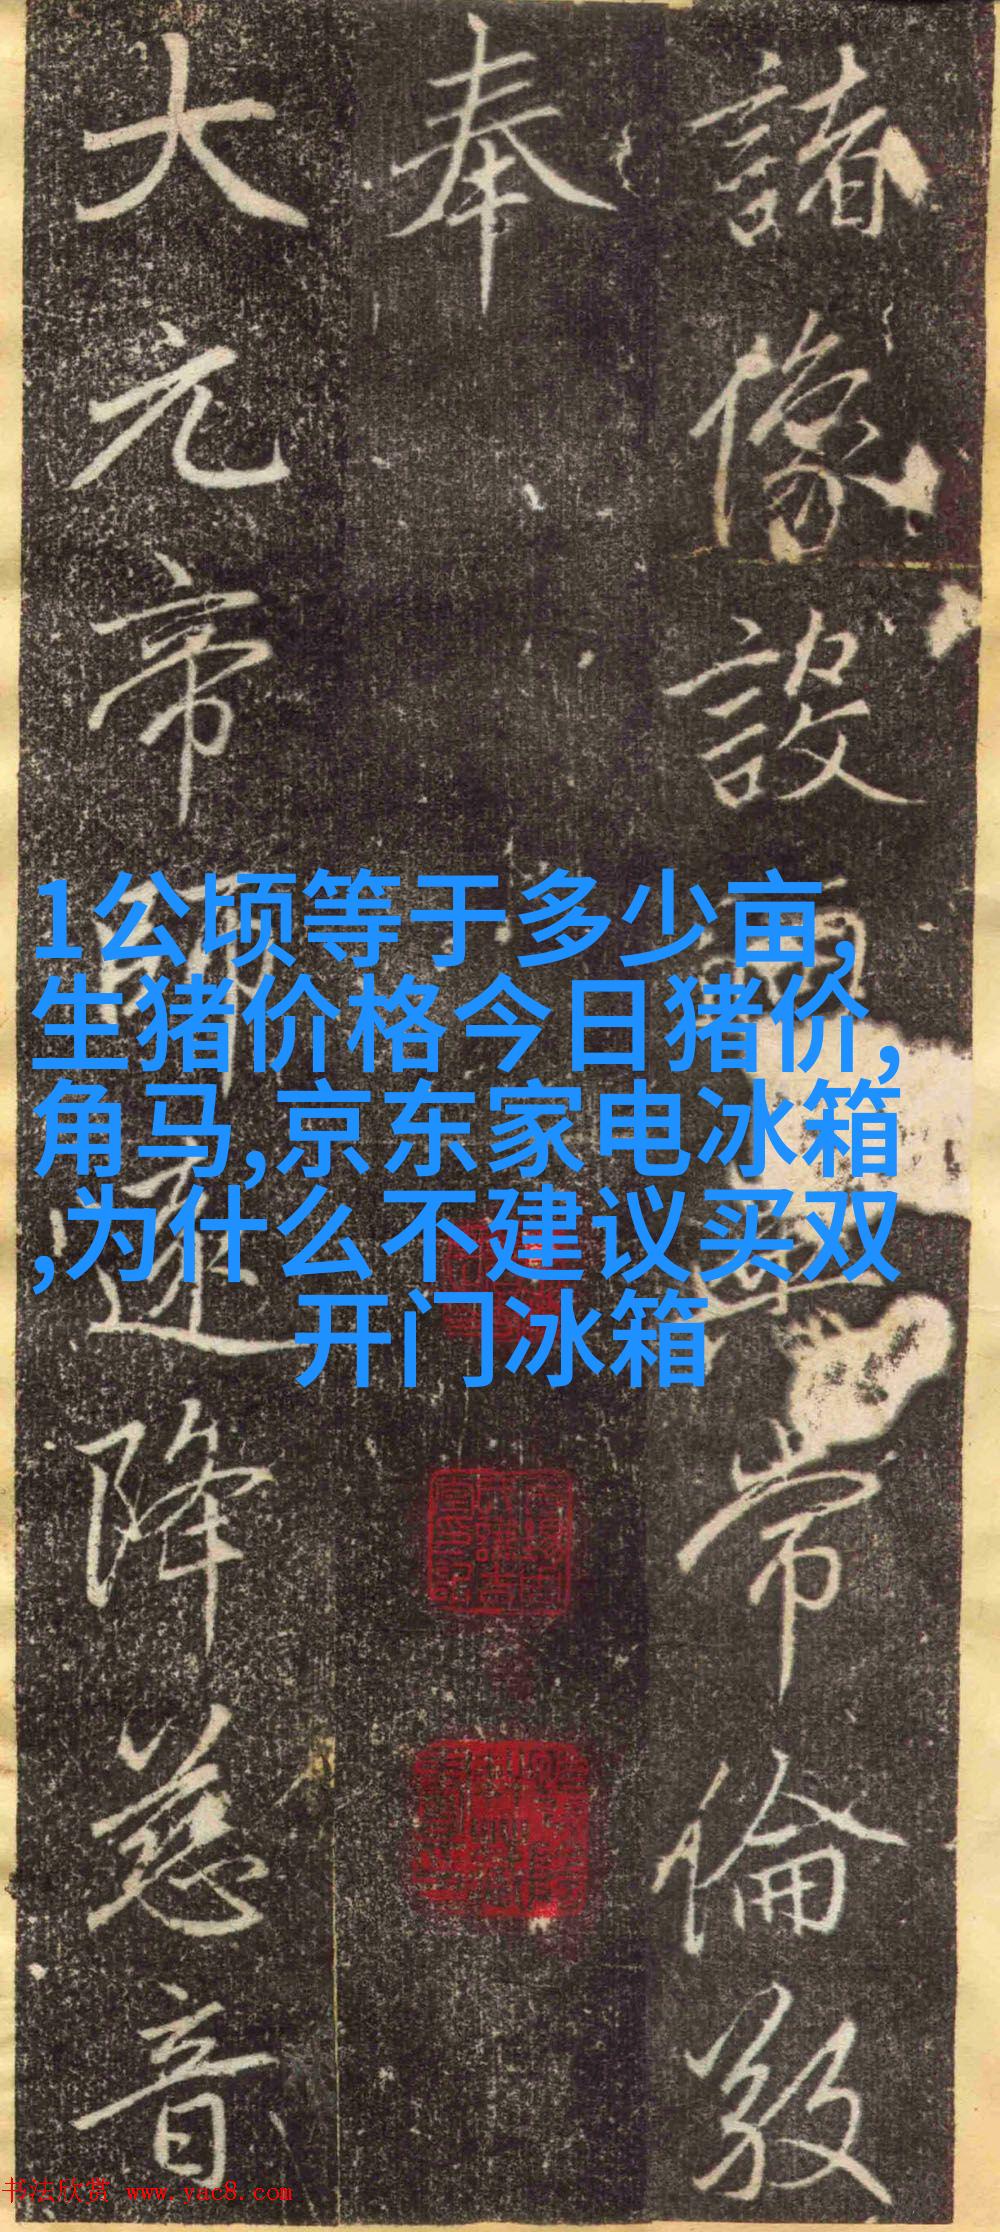 諸像設常倫
奉
大元帝師遠降慈音
1公顷等于多少亩,
生猪价格今日猪价,
角马,京东家电冰箱
,为什么不建议买双
开门冰箱
书法欣赏 www.yac8.com